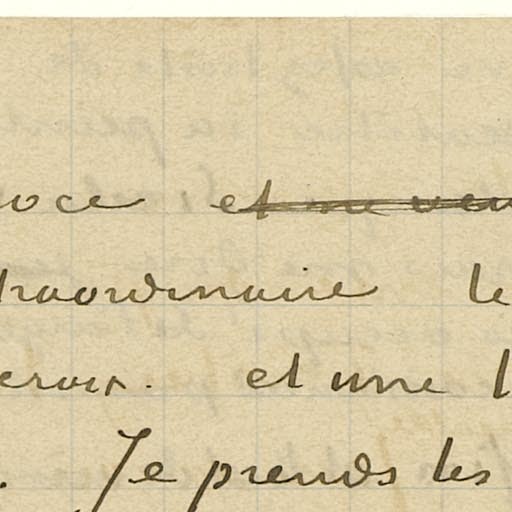 oce et
traordinaire le
et une
. Je prends les